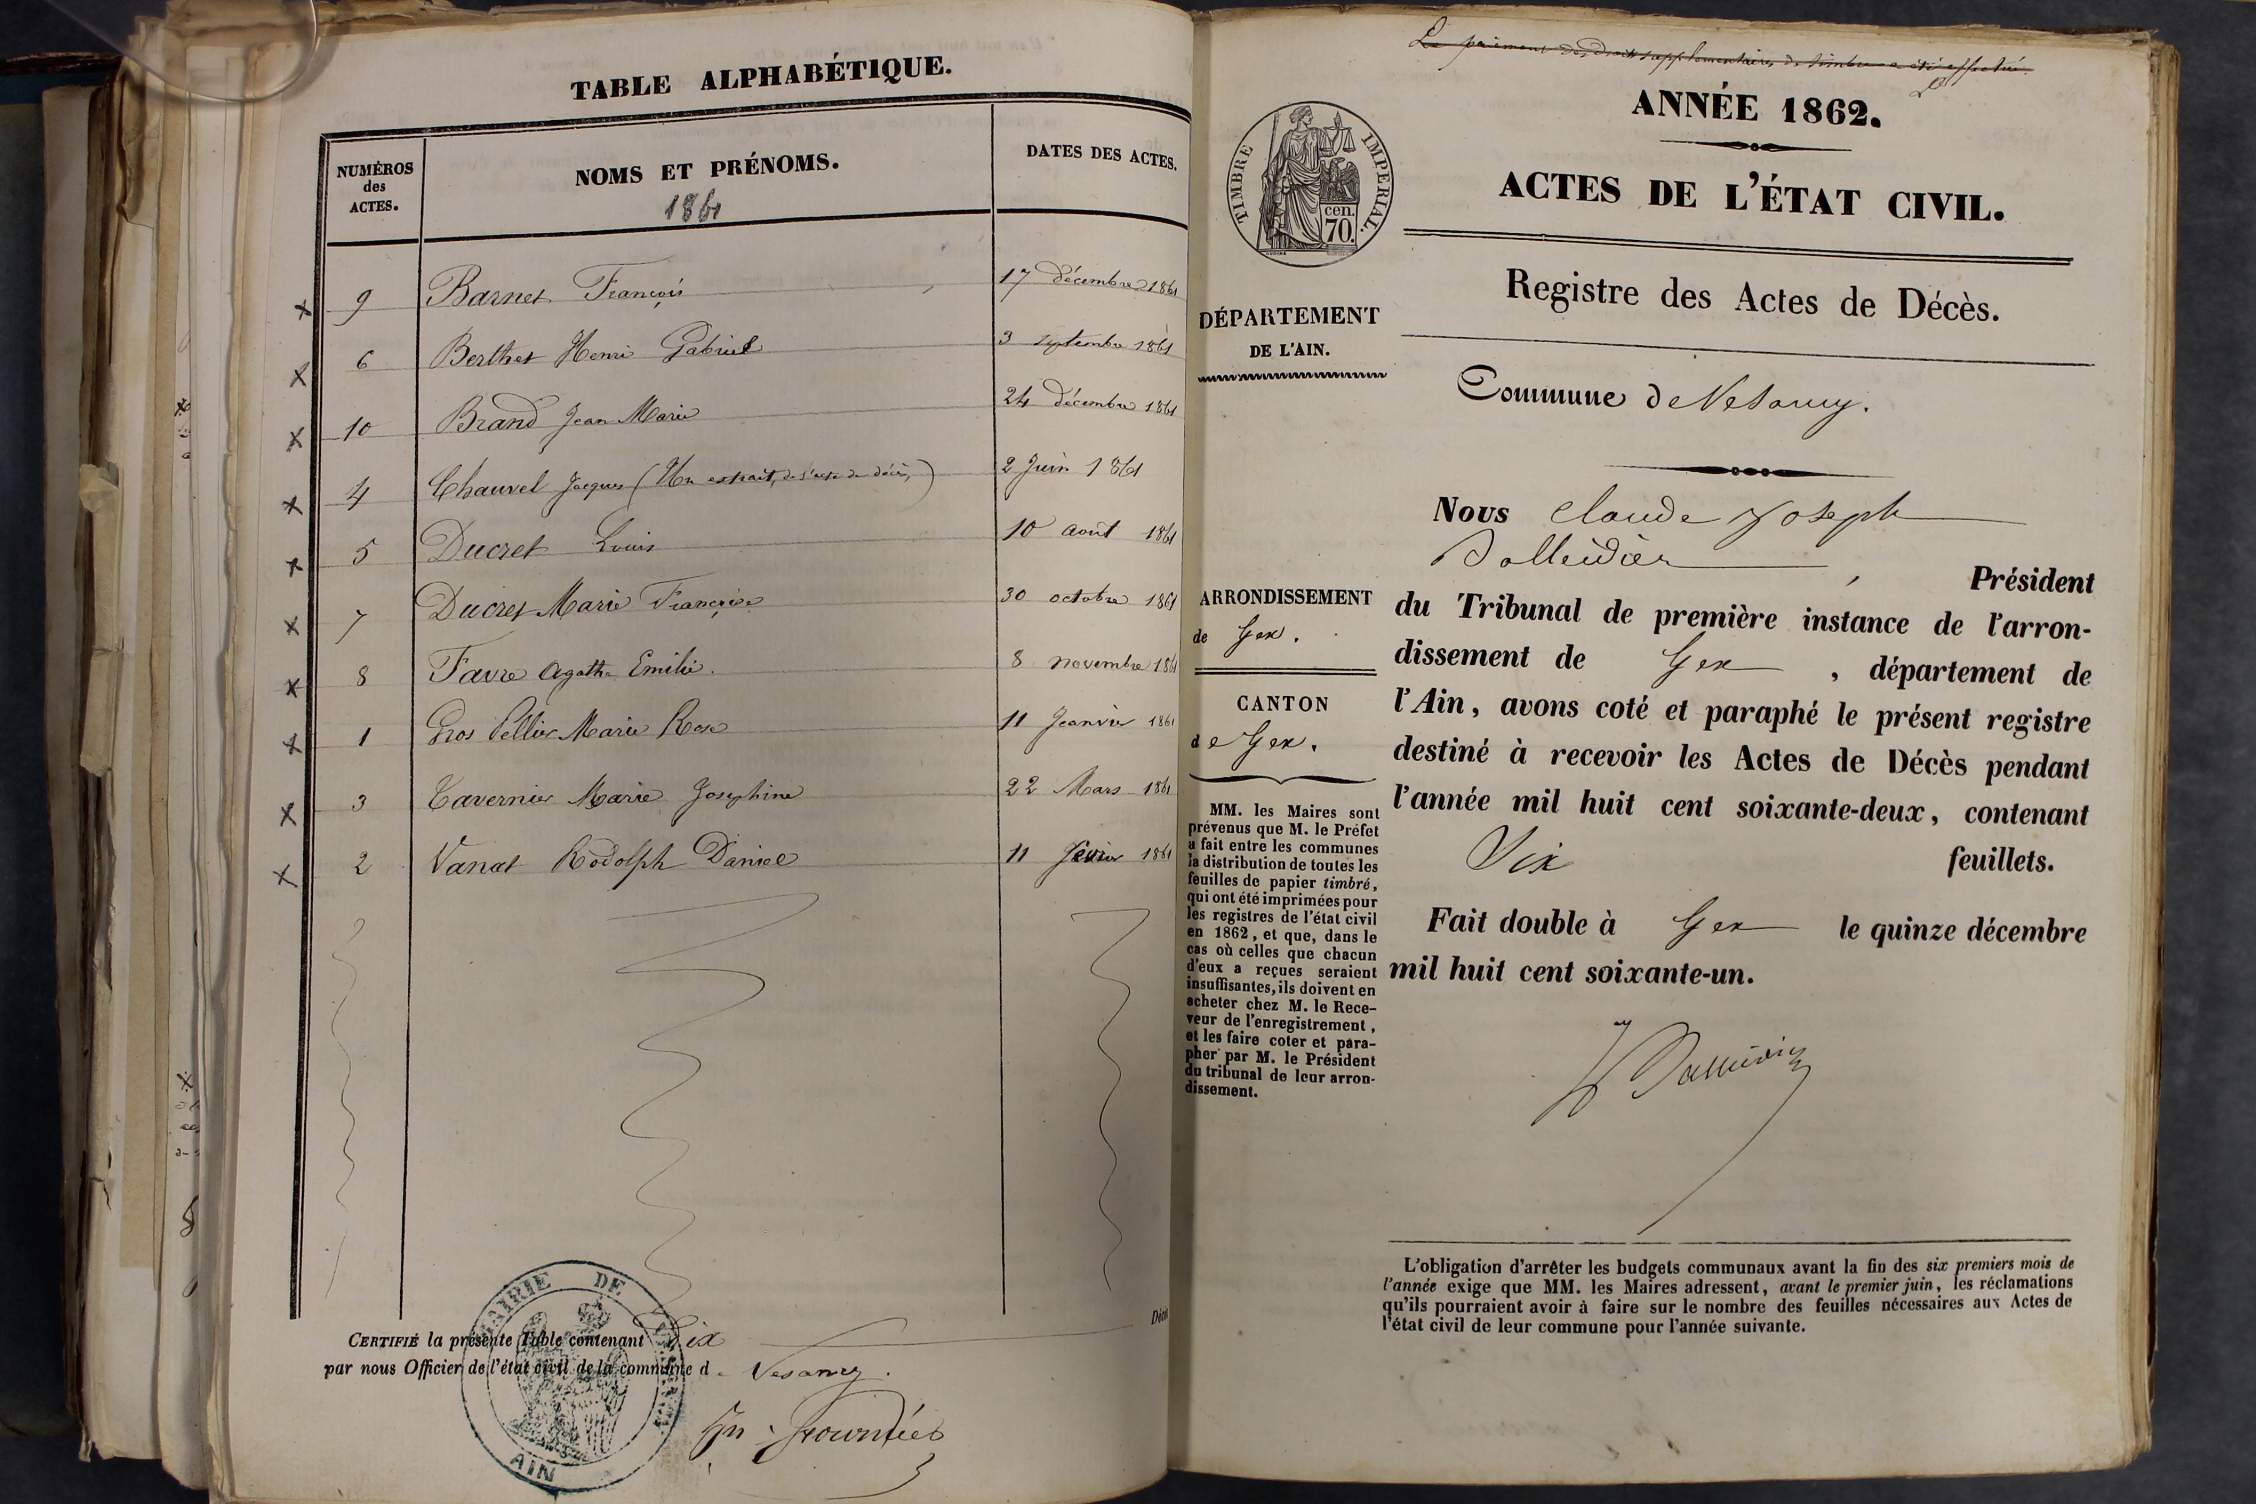 TABLE ALPHABÉTIQUE.
NUMÉROS des ACTES.
NOMS ET PRÉNOMS.
1861
DATES DES ACTES.
x 9 Barnet François 17 décembre 1861
x 6 Berthet Henri Gabriel 3 septembre 1861
x 10 Brand Jean Marie 24 décembre 1861
x 4 Chauvel Jacques (Un extrait de l'acte de décès) 2 Juin 1861
x 5 Ducret Louis 10 août 1861
x 7 Ducret Marie Françoise 30 octobre 1861
x 8 Favre Agathe Emilie. 8 novembre 1861
x 1 Gros Pellier Marie Rose 11 Jeanvier 1861
x 3 Tavernier Marie Josephine 22 Mars 1861
x 2 Vanat Rodolph Daniel 11 1861
CERTIFIÉ la présente Table contenant Dix Décès
par nous Officier de l'état civil de la commune de Vesancy.
MAIRIE DE
AIN
Le paiement des droits supplémentaires de timbre a été effectué.
ANNÉE 1862.
TIMBRE IMPERIAL.
cen.
70.
ACTES DE L'ÉTAT CIVIL.
Registre des Actes de Décès.
DÉPARTEMENT
DE L'AIN.
Commune de Vesancy.
Nous Claude Joseph
, Président
du Tribunal de première instance de l'arron-
dissement de Gex , département de
l'Ain, avons coté et paraphé le présent registre
destiné à recevoir les Actes de Décès pendant
l'année mil huit cent soixante-deux, contenant
Six feuillets.
Fait double à Gex le quinze décembre
mil huit cent soixante-un.
ARRONDISSEMENT
de Gex.
CANTON
de Gex.
MM. les Maires sont
prévenus que M. le Préfet
a fait entre les communes
la distribution de toutes les
feuilles de papier timbré,
qui ont été imprimées pour
les registres de l'état civil
en 1862, et que, dans le
cas où celles que chacun
d'eux a reçues seraient
insuffisantes, ils doivent en
acheter chez M. le Rece-
veur de l'enregistrement,
et les faire coter et para-
pher par M. le Président
du tribunal de leur arron-
dissement.
L'obligation d'arrêter les budgets communaux avant la fin des six premiers mois de
l'année exige que MM. les Maires adressent, avant le premier juin, les réclamations
qu'ils pourraient avoir à faire sur le nombre des feuilles nécessaires aux Actes de
l'état civil de leur commune pour l'année suivante.